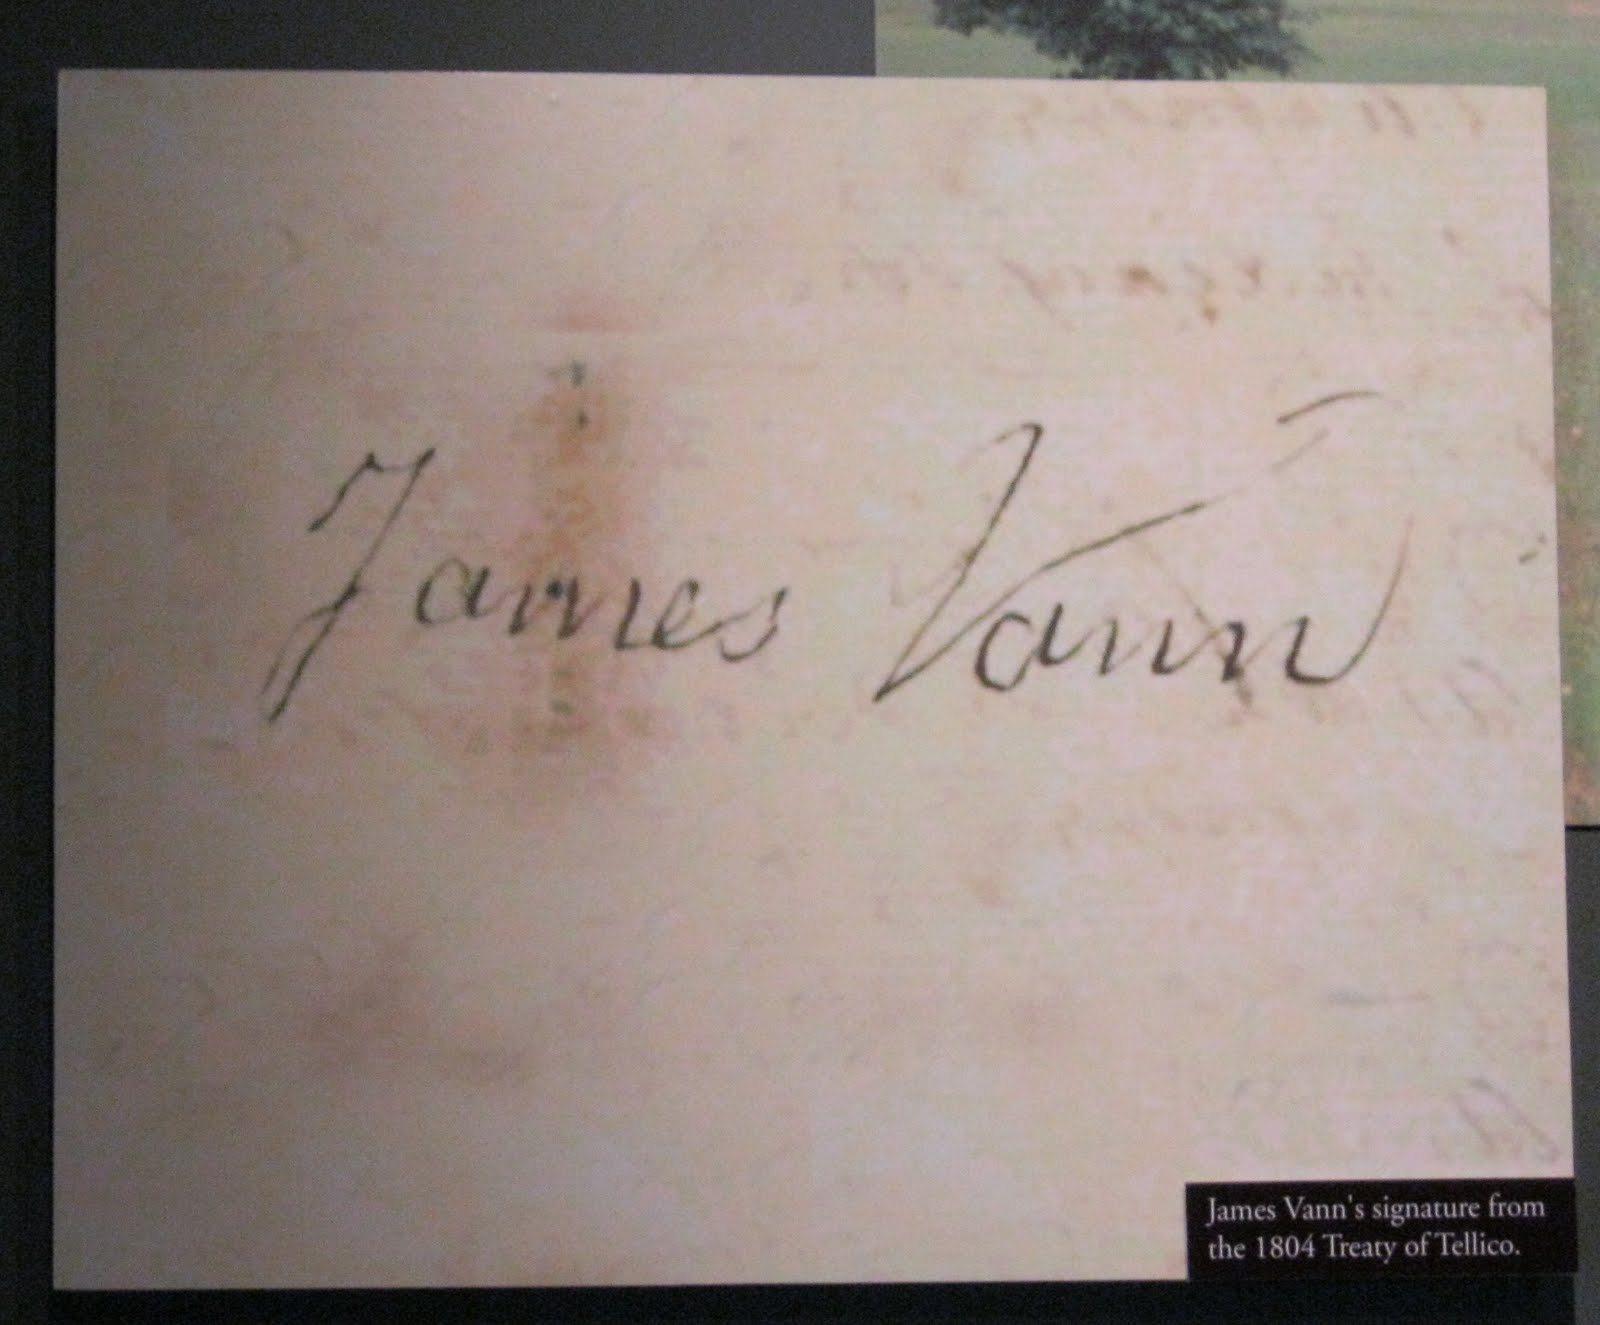 James Vann
James Vann's signature from
the 1804 Treaty of Tellico.